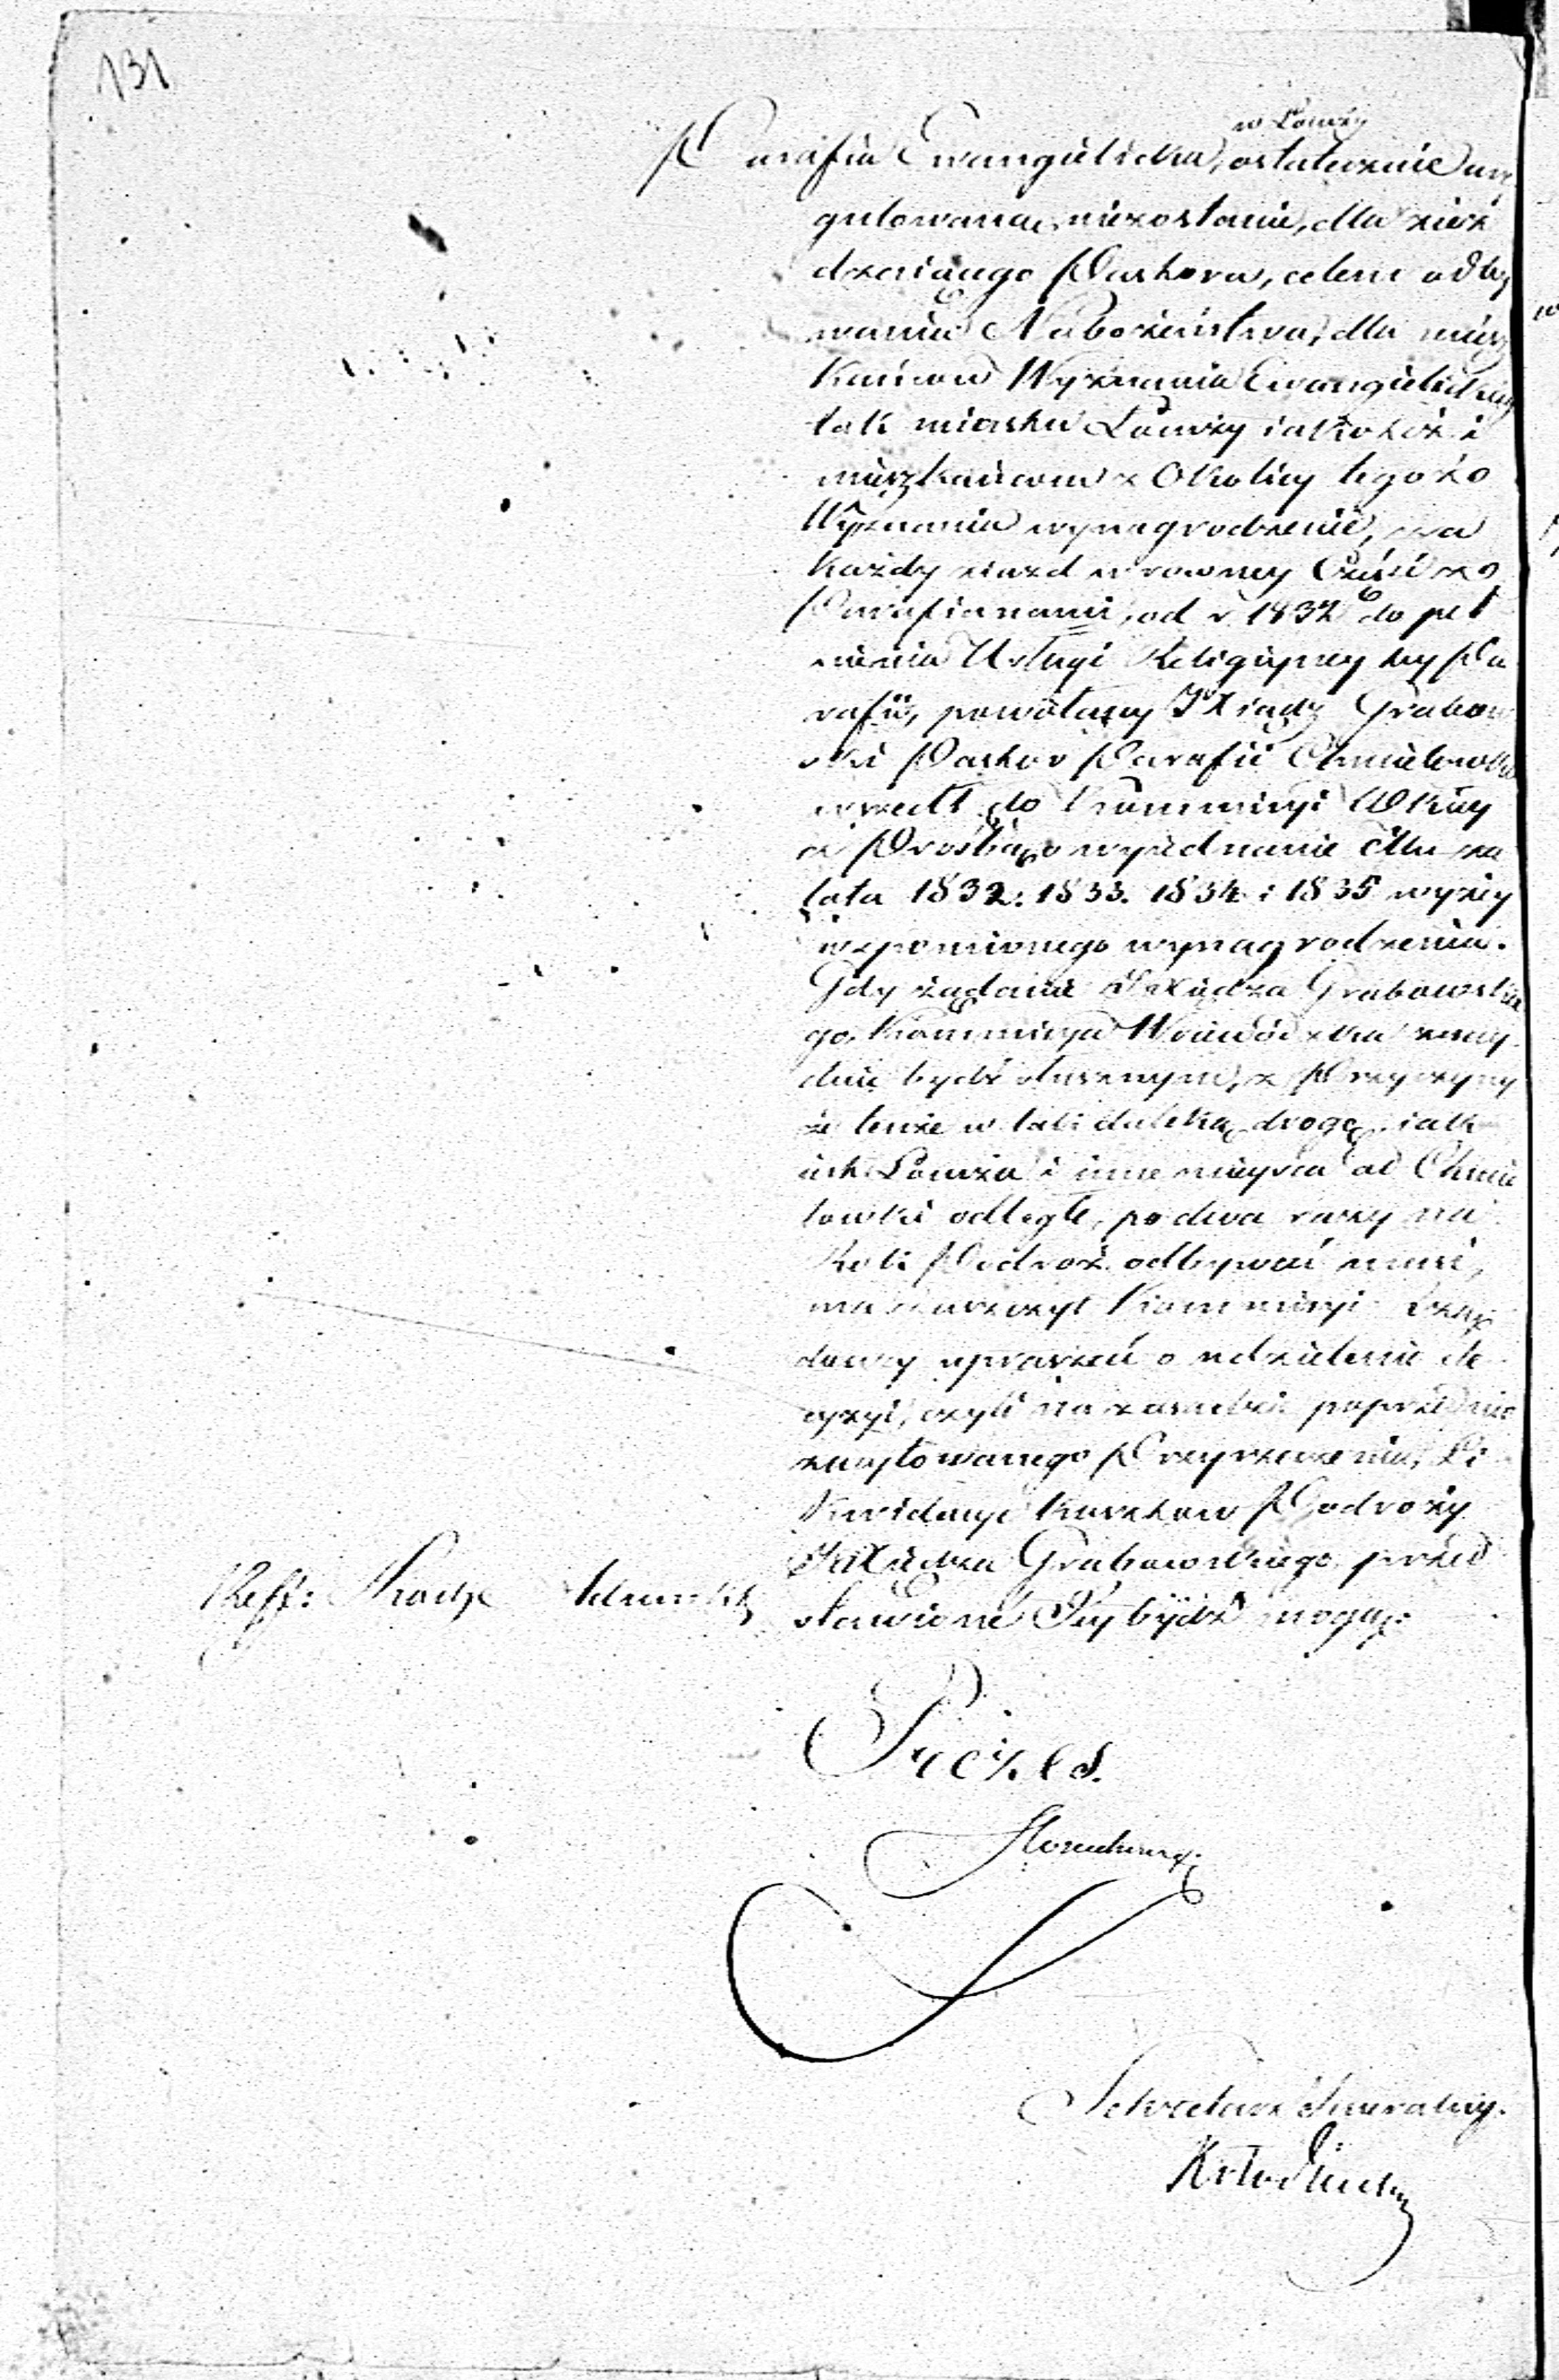 131
w Łomży
Parafia Ewangielicka, ostatecznie ure
gulowaną niezostanie, dla zież
dzaiącego Pastora, celem odby
wania Nabożeństwa, dla miesz
kańców Wyznania Ewangielickiego
tak miasta Łomży iakoteż i
mieszkańcom z Okolicy tegoż
Wyznania wynagrodzenie, za
każdy ziazd w rowney Części z
Parafianami, od r. 1832 do peł
nienia Usługi Religiyney tey Pa
rafii, powołany JXiądz Grabow
ski Pastor Parafii Chmielowka
wszedł do Kommissyi
z Prośbą o wyiednanie dlań za
lata 1832. 1833. 1834 i 1835 wyżey
wspomnionego wynagrodzenia.
Gdy żądanie JXiędza Grabowskie
go, Kommissya Woiewódzka znay
duie bydź słusznym, z Przyczyny
że tenże w tak daleką drogę iak
iest Łomża i inne mieysca od Chmie
lowki odległe, po dwa razy na
Rok Podróż odbywać musi,
ma zaszczyt Kommissyi Rzą
dowey upraszać o udzielenie de
cyzyi, czyli na zasadzie poprzednio
zacytowanego Przyrzeczenia, Li
kwidacye kosztow Podroży
JXiędza Grabowskiego przed
stawione Jey bydź mogą.
Reff:
Prezes.
Sekretarz Jeneralny.